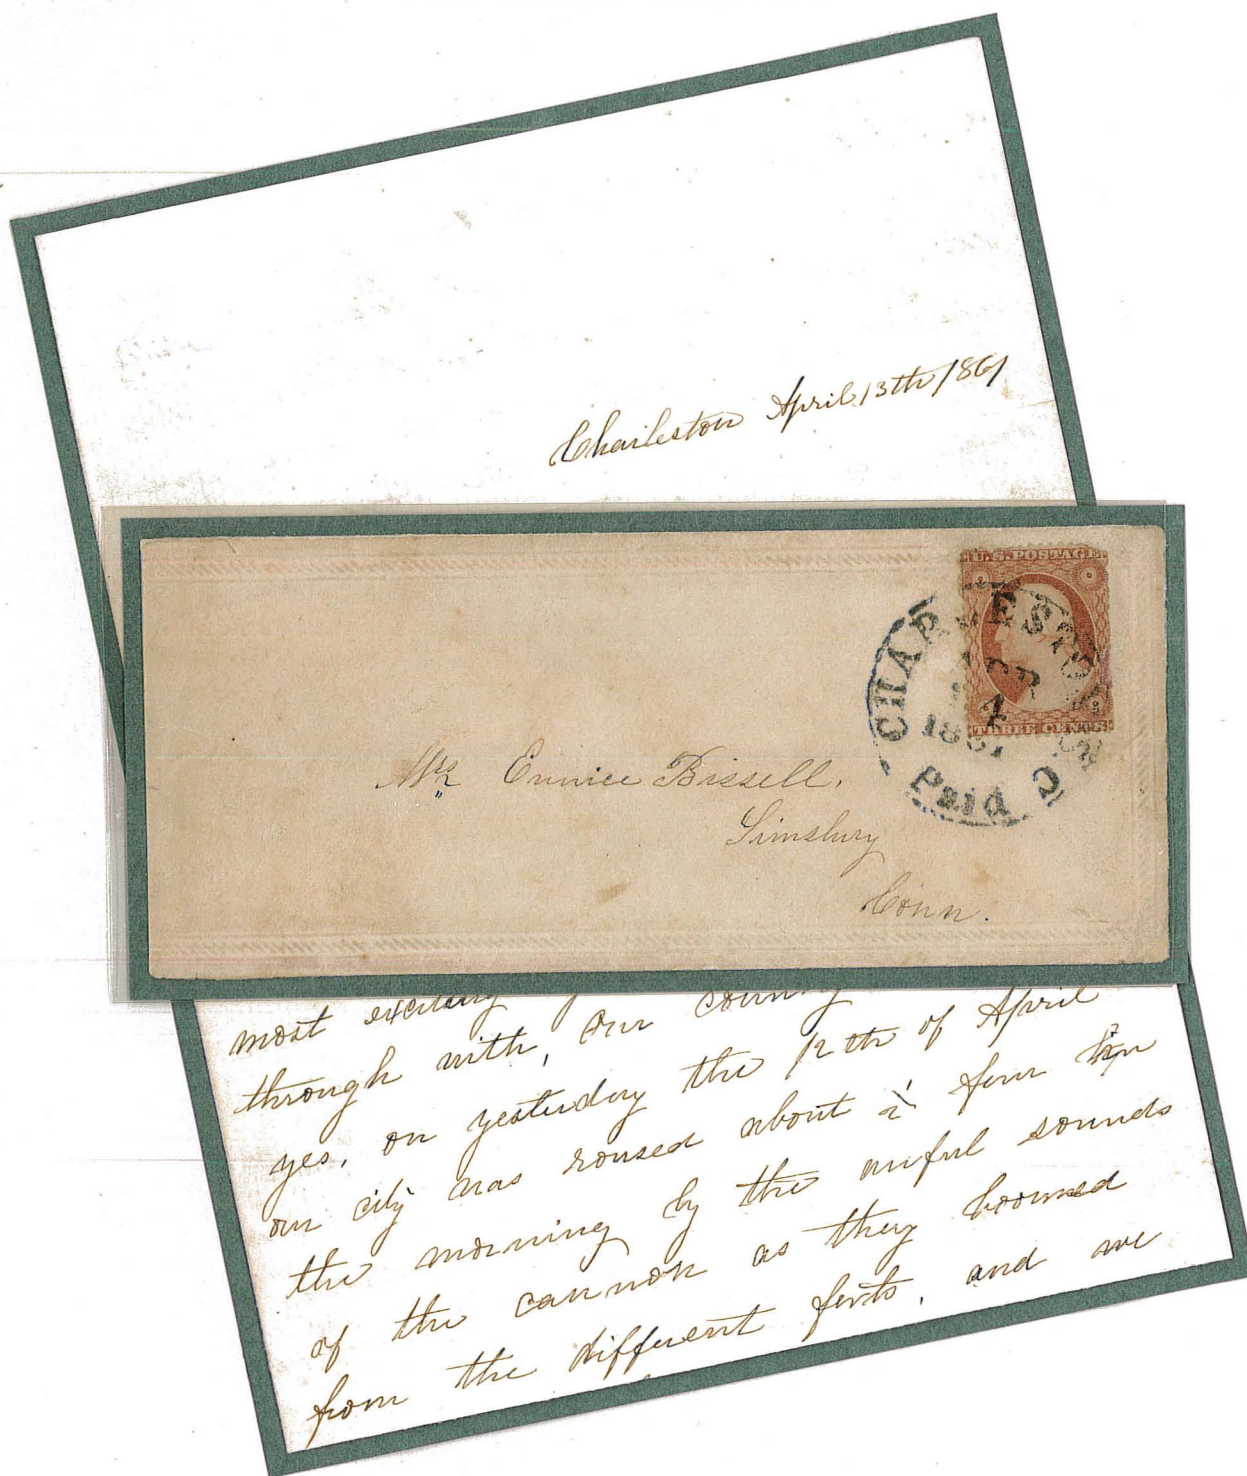 Charleston April 13th 1861
U.S. POSTAGE
THREE CENTS
CHARLESTON
APR
14
1861
Paid
Mrs Eunice Bissell.
Simsbury
Conn.
most exciting
through with, our country
yes, on yesterday the 12th of April
our city was roused about ½ four in
the morning by the awful sounds
of the cannon as they boomed
from the different forts, and we